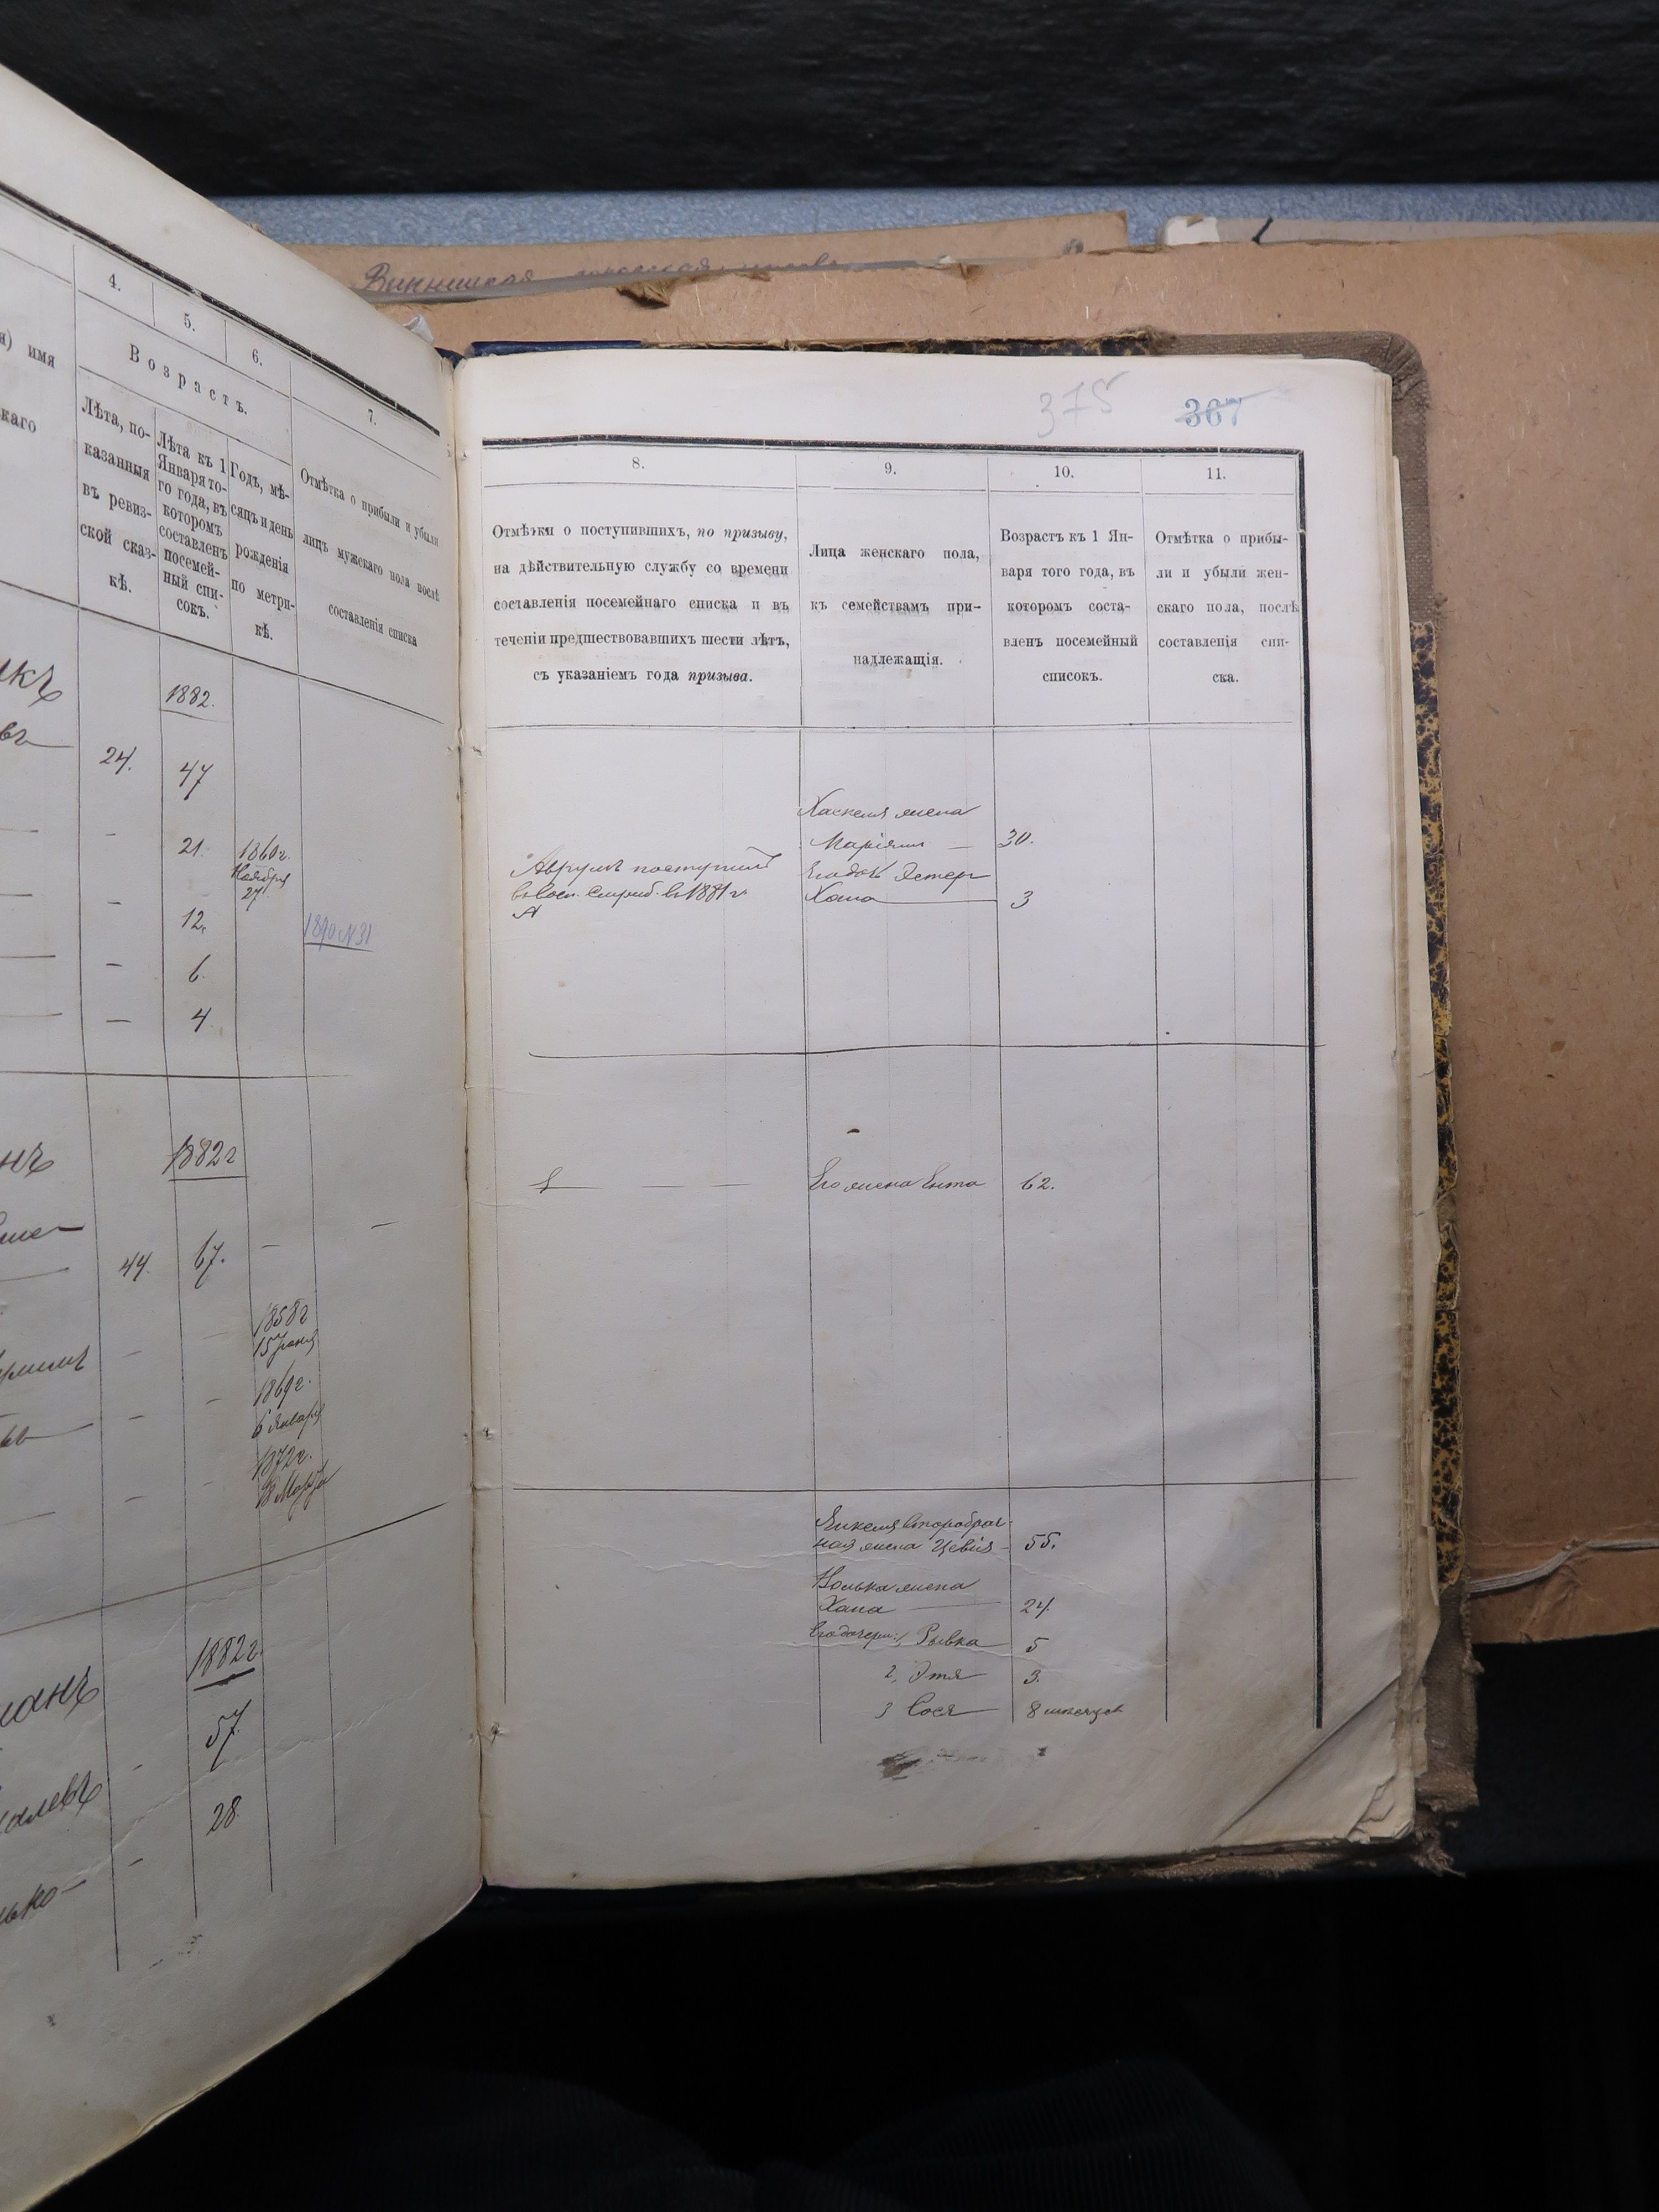 Винницкая
375
367
4.
5.
6.
7.
имя
каго
Возрастъ.
Лѣта, по-
казанныя
въ ревиз-
ской сказ-
кѣ.
Лѣта къ 1
Января то-
го года, въ
которомъ
составленъ
посемей-
ный спи-
сокъ.
Годъ, мѣ-
сяцъ и день
рожденія
по метри-
кѣ.
Отмѣтка о прибыли и убыли
лицъ мужскаго пола послѣ
составленія списка
1882.
24.
47
21.
1860 г.
Ноября
27
12.
1890 N 31
6.
4
1882 г
44.
67.
1858 г
15
1869 г.
6 Января
1872 г.
Марта
1882 г.
57
28
8.
9.
10.
11.
Отмѣтки о поступившихъ, по призыву,
на дѣйствительную службу со времени
составленія посемейнаго списка и въ
теченіи предшествовавшихъ шести лѣтъ,
съ указаніемъ года призыва.
Лица женскаго пола,
къ семействамъ при-
надлежащія.
Возрастъ къ 1 Ян-
варя того года, въ
которомъ соста-
вленъ посемейный
списокъ.
Отмѣтка о прибы-
ли и убыли жен-
скаго пола, послѣ
составленія спи-
ска.
Хаскеля жена
Маріям — 30.
Эстер
Хана 3
поступил
в 1881 г.
Его жена Ента 62.
Янкеля второбрач-
ная жена Цевія 55.
жена
Хана 24.
Его дочери: 1, Рывка 5
2, Этя 3.
3 Сося 8 месяцев